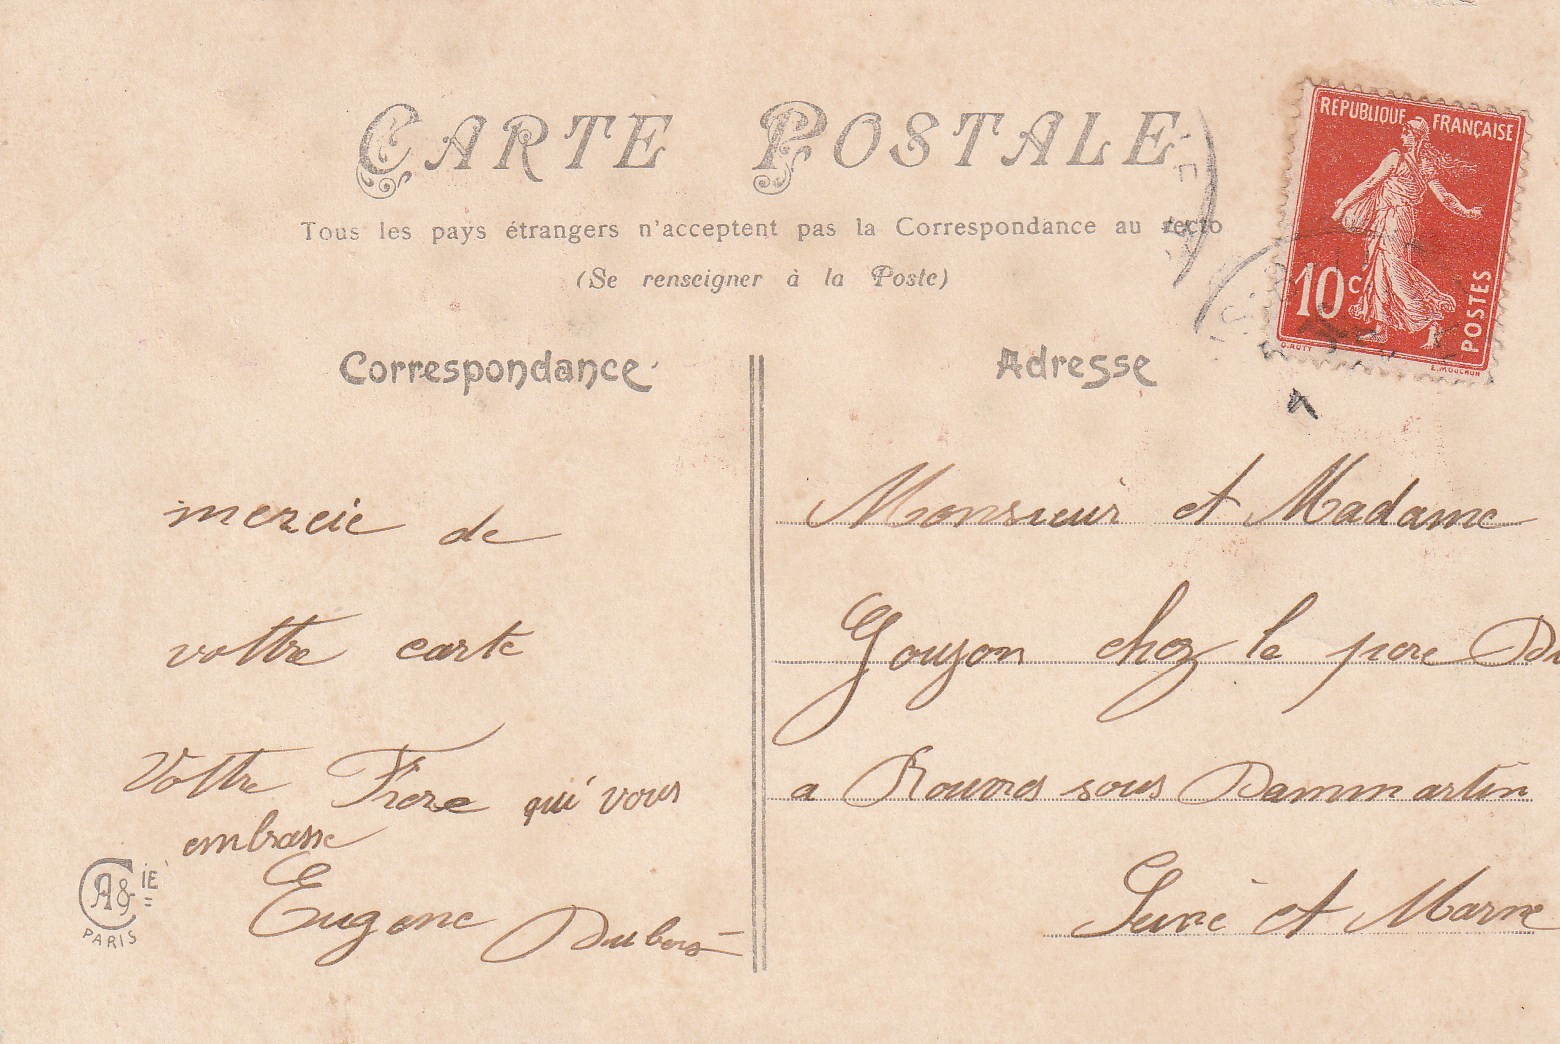 CARTE POSTALE
Tous les pays étrangers n'acceptent pas la Correspondance au recto
(Se renseigner à la Poste)
REPUBLIQUE FRANÇAISE
10c
POSTES
O. ROTY
E. MOUCHON
Correspondance
mercie de
vottre carte
Vottre Frere qui vous
embrasse
Eugene Dubois
A & CIE
PARIS
Adresse
Monsieur et Madame
Goujon chez le pere Du
a Rouvres sous Dammartin
Seine et Marne